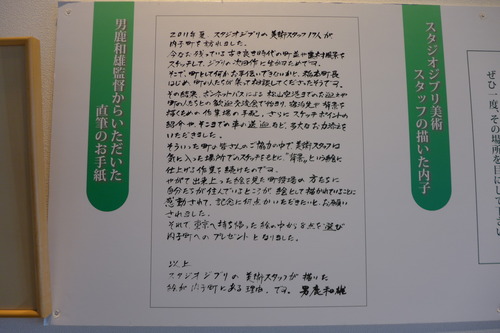 スタジオジブリ美術
スタッフの描いた内子
2011年夏 スタジオジブリの美術スタッフ17人が
内子町を訪れました。
今なお残っている古き良き時代の町並や農村風景を
スケッチして、ジブリ次回作に生かすためです。
そこで、町として何かお手伝いできないかと、稲本町長
はじめ、町の人たちが
その結果、ボンネットバスによる松山空港までのお迎えや
町の人たちとの歓迎交流会で始まり、宿泊先や背景を
描くための作業場の手配、さらにスケッチポイントの
紹介や、そこまでの車の送迎など、多大なお力添えを
いただきました。
そういった町の皆さんのご協力の中で美術スタッフは
気に入った場所でのスケッチをもとに"背景"という絵に
仕上げる作業を続けたのです。
やがて出来上った絵を見た町役場の方たちに
自分たちが住んでいるところが絵として描かれていることに
感動されて、記念に何点かいただきたいと、お願い
されました。
それで東京へ持ち帰った絵の中から8点を選び
内子町へのプレゼントとなりました。
以上
スタジオジブリの美術スタッフが描いた
絵が内子町にある理由です。 男鹿和雄
男鹿和雄監督からいただいた
直筆のお手紙
ぜひ一度、その場所を